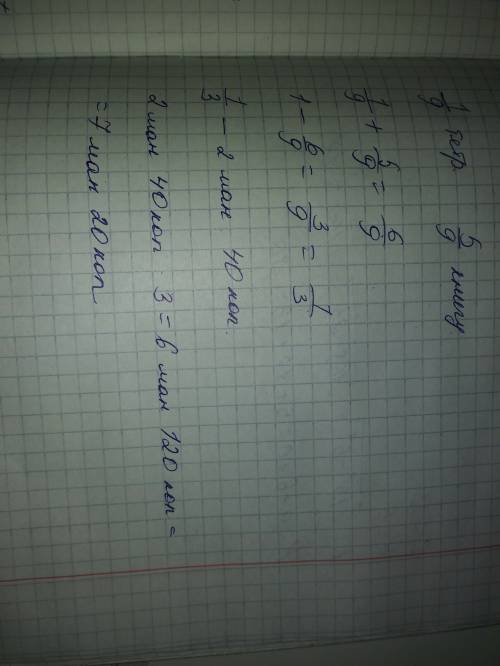 1/9 тетр. 5/9 книгу
1/9 + 5/9 = 6/9
1 - 6/9 = 3/9 = 1/3
1/3 - 2 ман 40 коп.
2 ман 40 коп · 3 = 6 ман 120 коп =
= 7 ман 20 коп